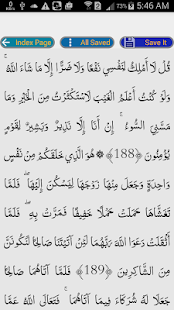 5:46 AM
Index Page All Saved Save It
قُل لَّا أَمْلِكُ لِنَفْسِي نَفْعًا وَلَا ضَرًّا إِلَّا مَا شَاءَ اللَّهُ ۚ
وَلَوْ كُنتُ أَعْلَمُ الْغَيْبَ لَاسْتَكْثَرْتُ مِنَ الْخَيْرِ وَمَا
مَسَّنِيَ السُّوءُ ۚ إِنْ أَنَا إِلَّا نَذِيرٌ وَبَشِيرٌ لِّقَوْمٍ
يُؤْمِنُونَ ﴿188﴾ ۞ هُوَ الَّذِي خَلَقَكُم مِّن نَّفْسٍ
وَاحِدَةٍ وَجَعَلَ مِنْهَا زَوْجَهَا لِيَسْكُنَ إِلَيْهَا ۖ فَلَمَّا
تَغَشَّاهَا حَمَلَتْ حَمْلًا خَفِيفًا فَمَرَّتْ بِهِ ۖ فَلَمَّا
أَثْقَلَت دَّعَوَا اللَّهَ رَبَّهُمَا لَئِنْ آتَيْتَنَا صَالِحًا لَّنَكُونَنَّ
مِنَ الشَّاكِرِينَ ﴿189﴾ فَلَمَّا آتَاهُمَا صَالِحًا
جَعَلَا لَهُ شُرَكَاءَ فِيمَا آتَاهُمَا ۚ فَتَعَالَى اللَّهُ عَمَّا